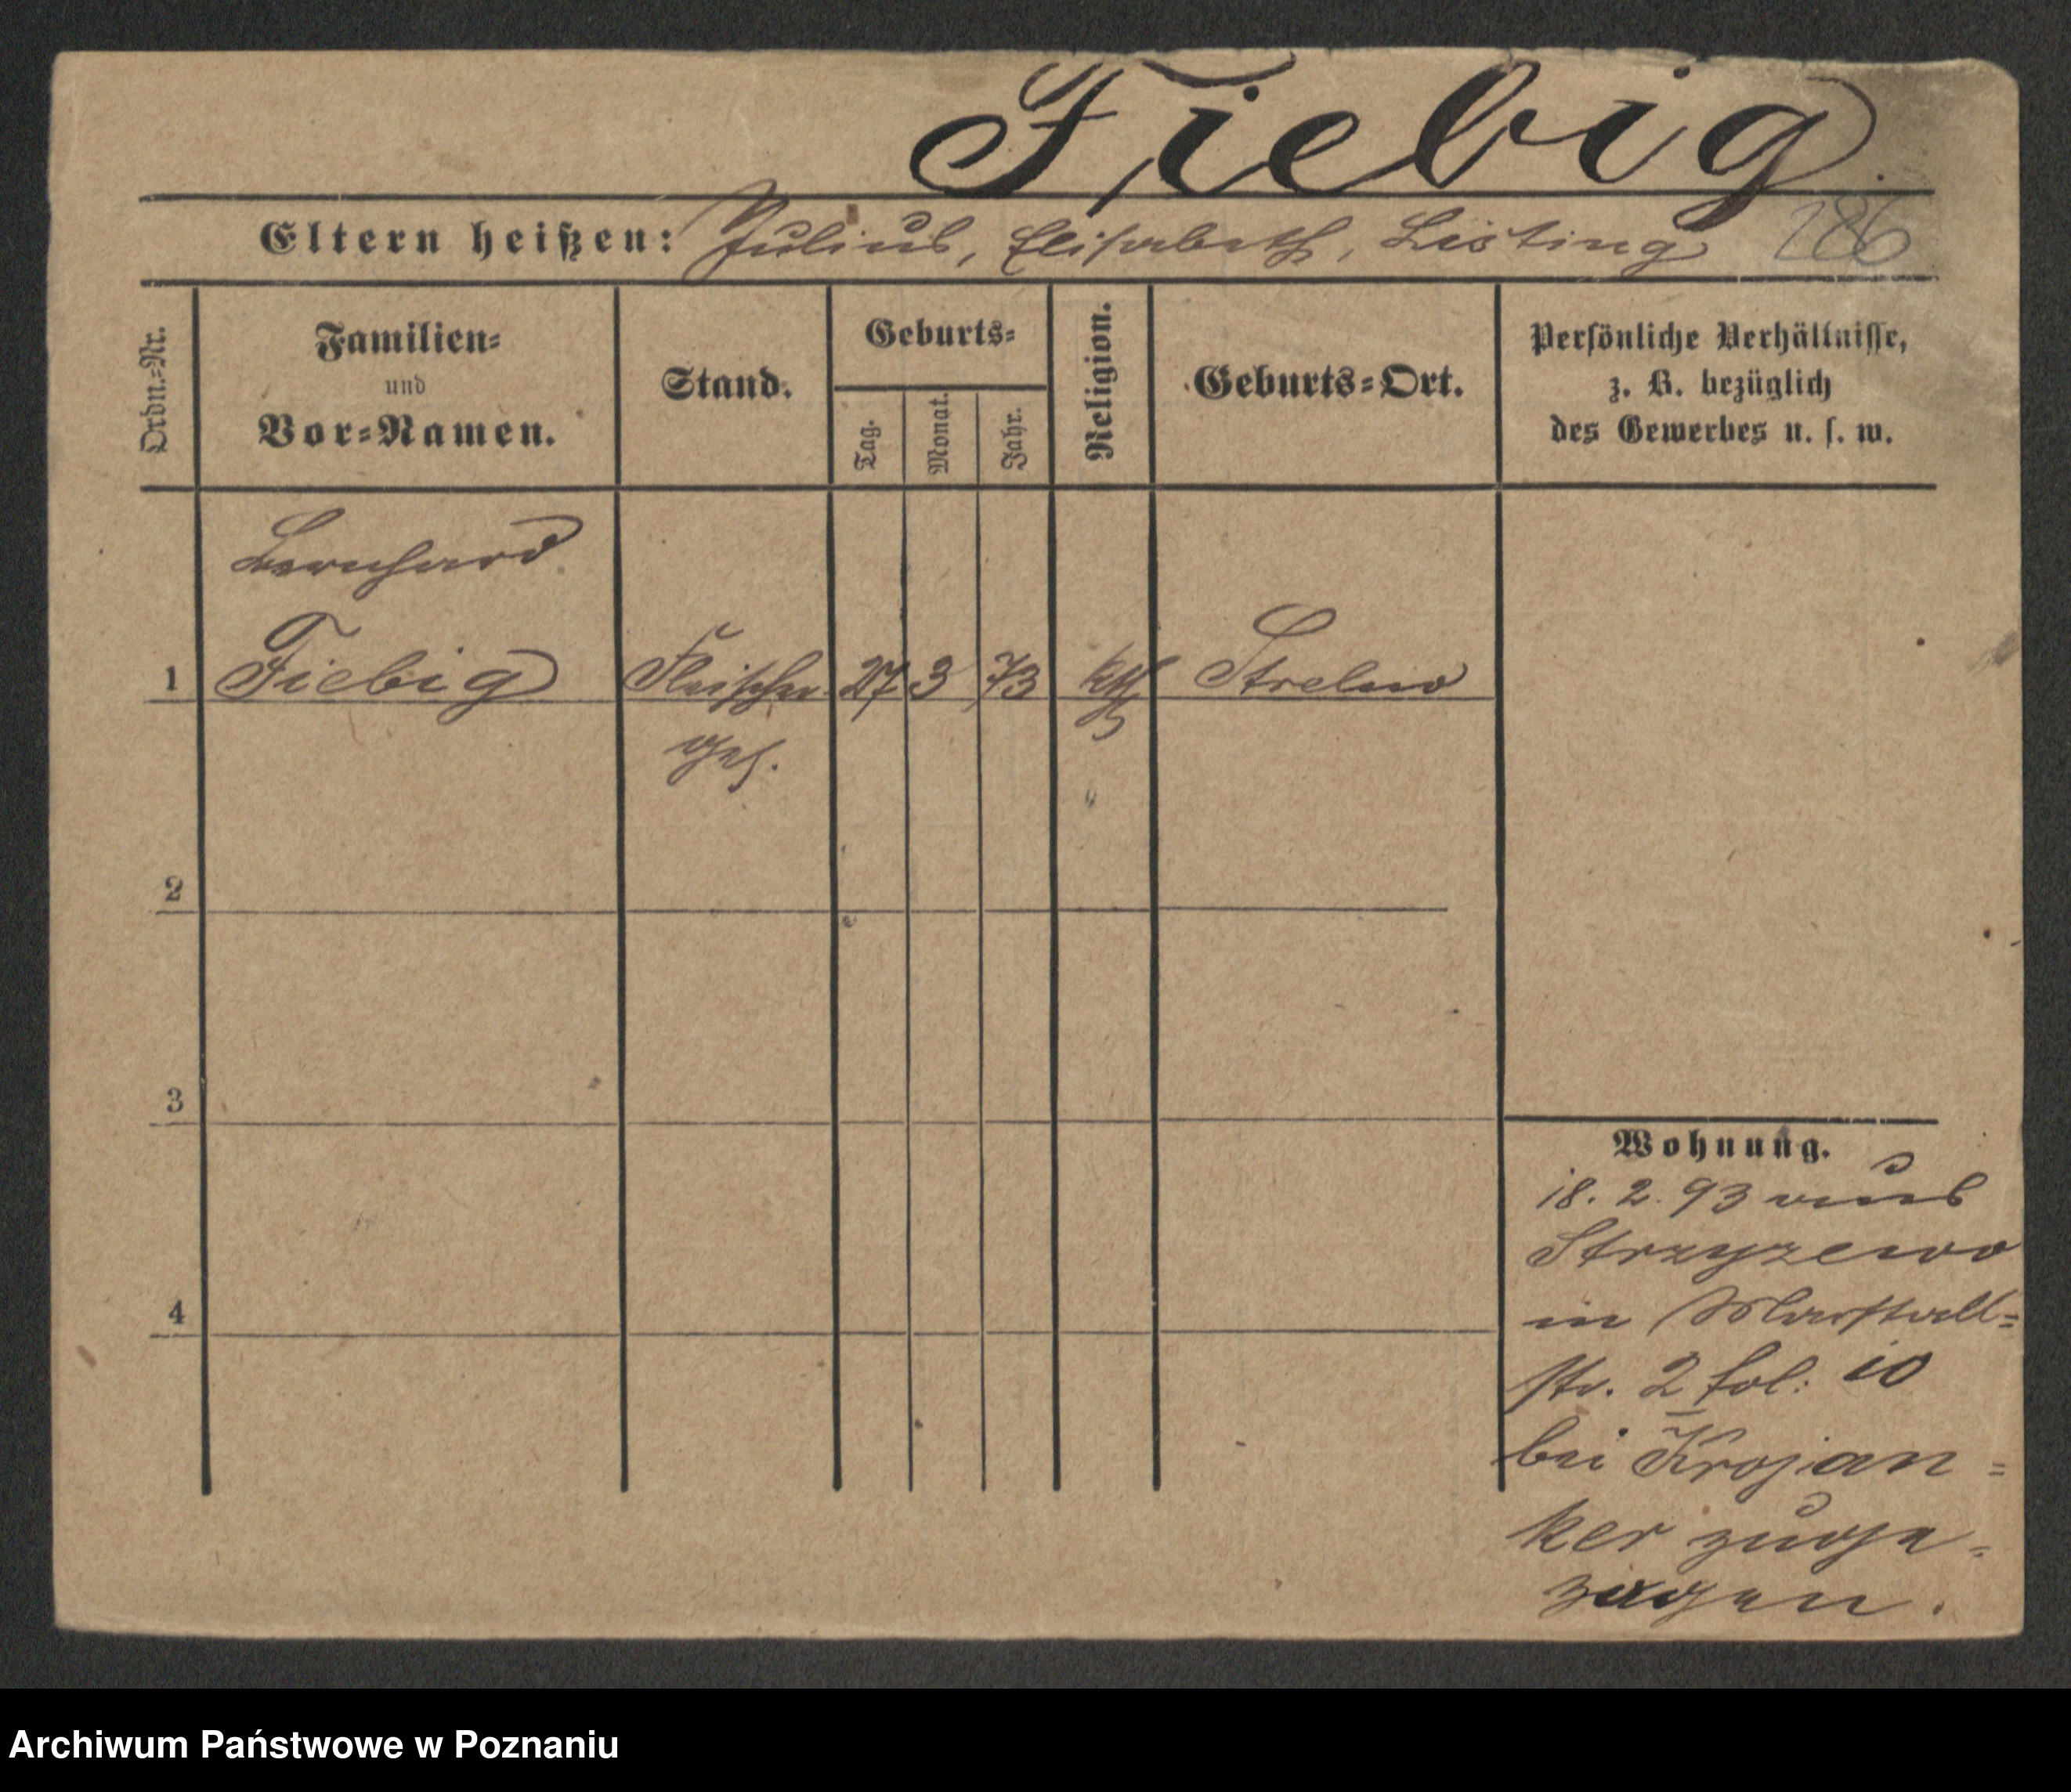 Fiebig.
Eltern heißen: Julius, Elisabeth, Listing 286
Ordn.-Nr.
Familien-
und
Vor-Namen.
Stand.
Geburts-
Tag.
Monat.
Jahr.
Religion.
Geburts-Ort.
Persönliche Verhältnisse,
z. B. bezüglich
des Gewerbes u. s. w.
Bernhard
1 Fiebig Fleischer 27 3 73 kth Strelno
ges.
2
3
4
Wohnung.
18. 2. 93 aus
Strzyzewo
in Marstall-
str. 2 fol: 10
bei Krojan-
ker zuge-
zogen.
Archiwum Państwowe w Poznaniu